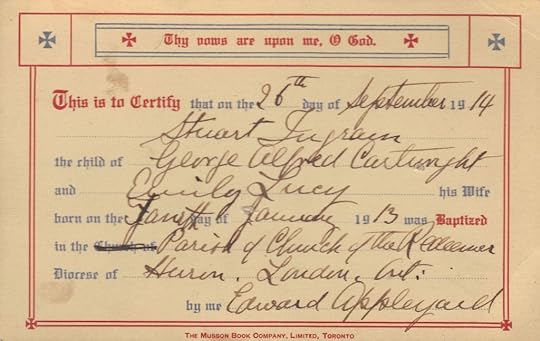 Thy vows are upon me, O God.
This is to Certify that on the 26th day of September 1914
Stuart Ingram
the child of George Alfred Cartwright
and Emily Lucy his Wife
born on the Tenth day of January 1913 was Baptized
in the Church of Parish of Church of the Redeemer
Diocese of Huron. London. Ont:
by me Edward Appleyard
THE MUSSON BOOK COMPANY, LIMITED, TORONTO